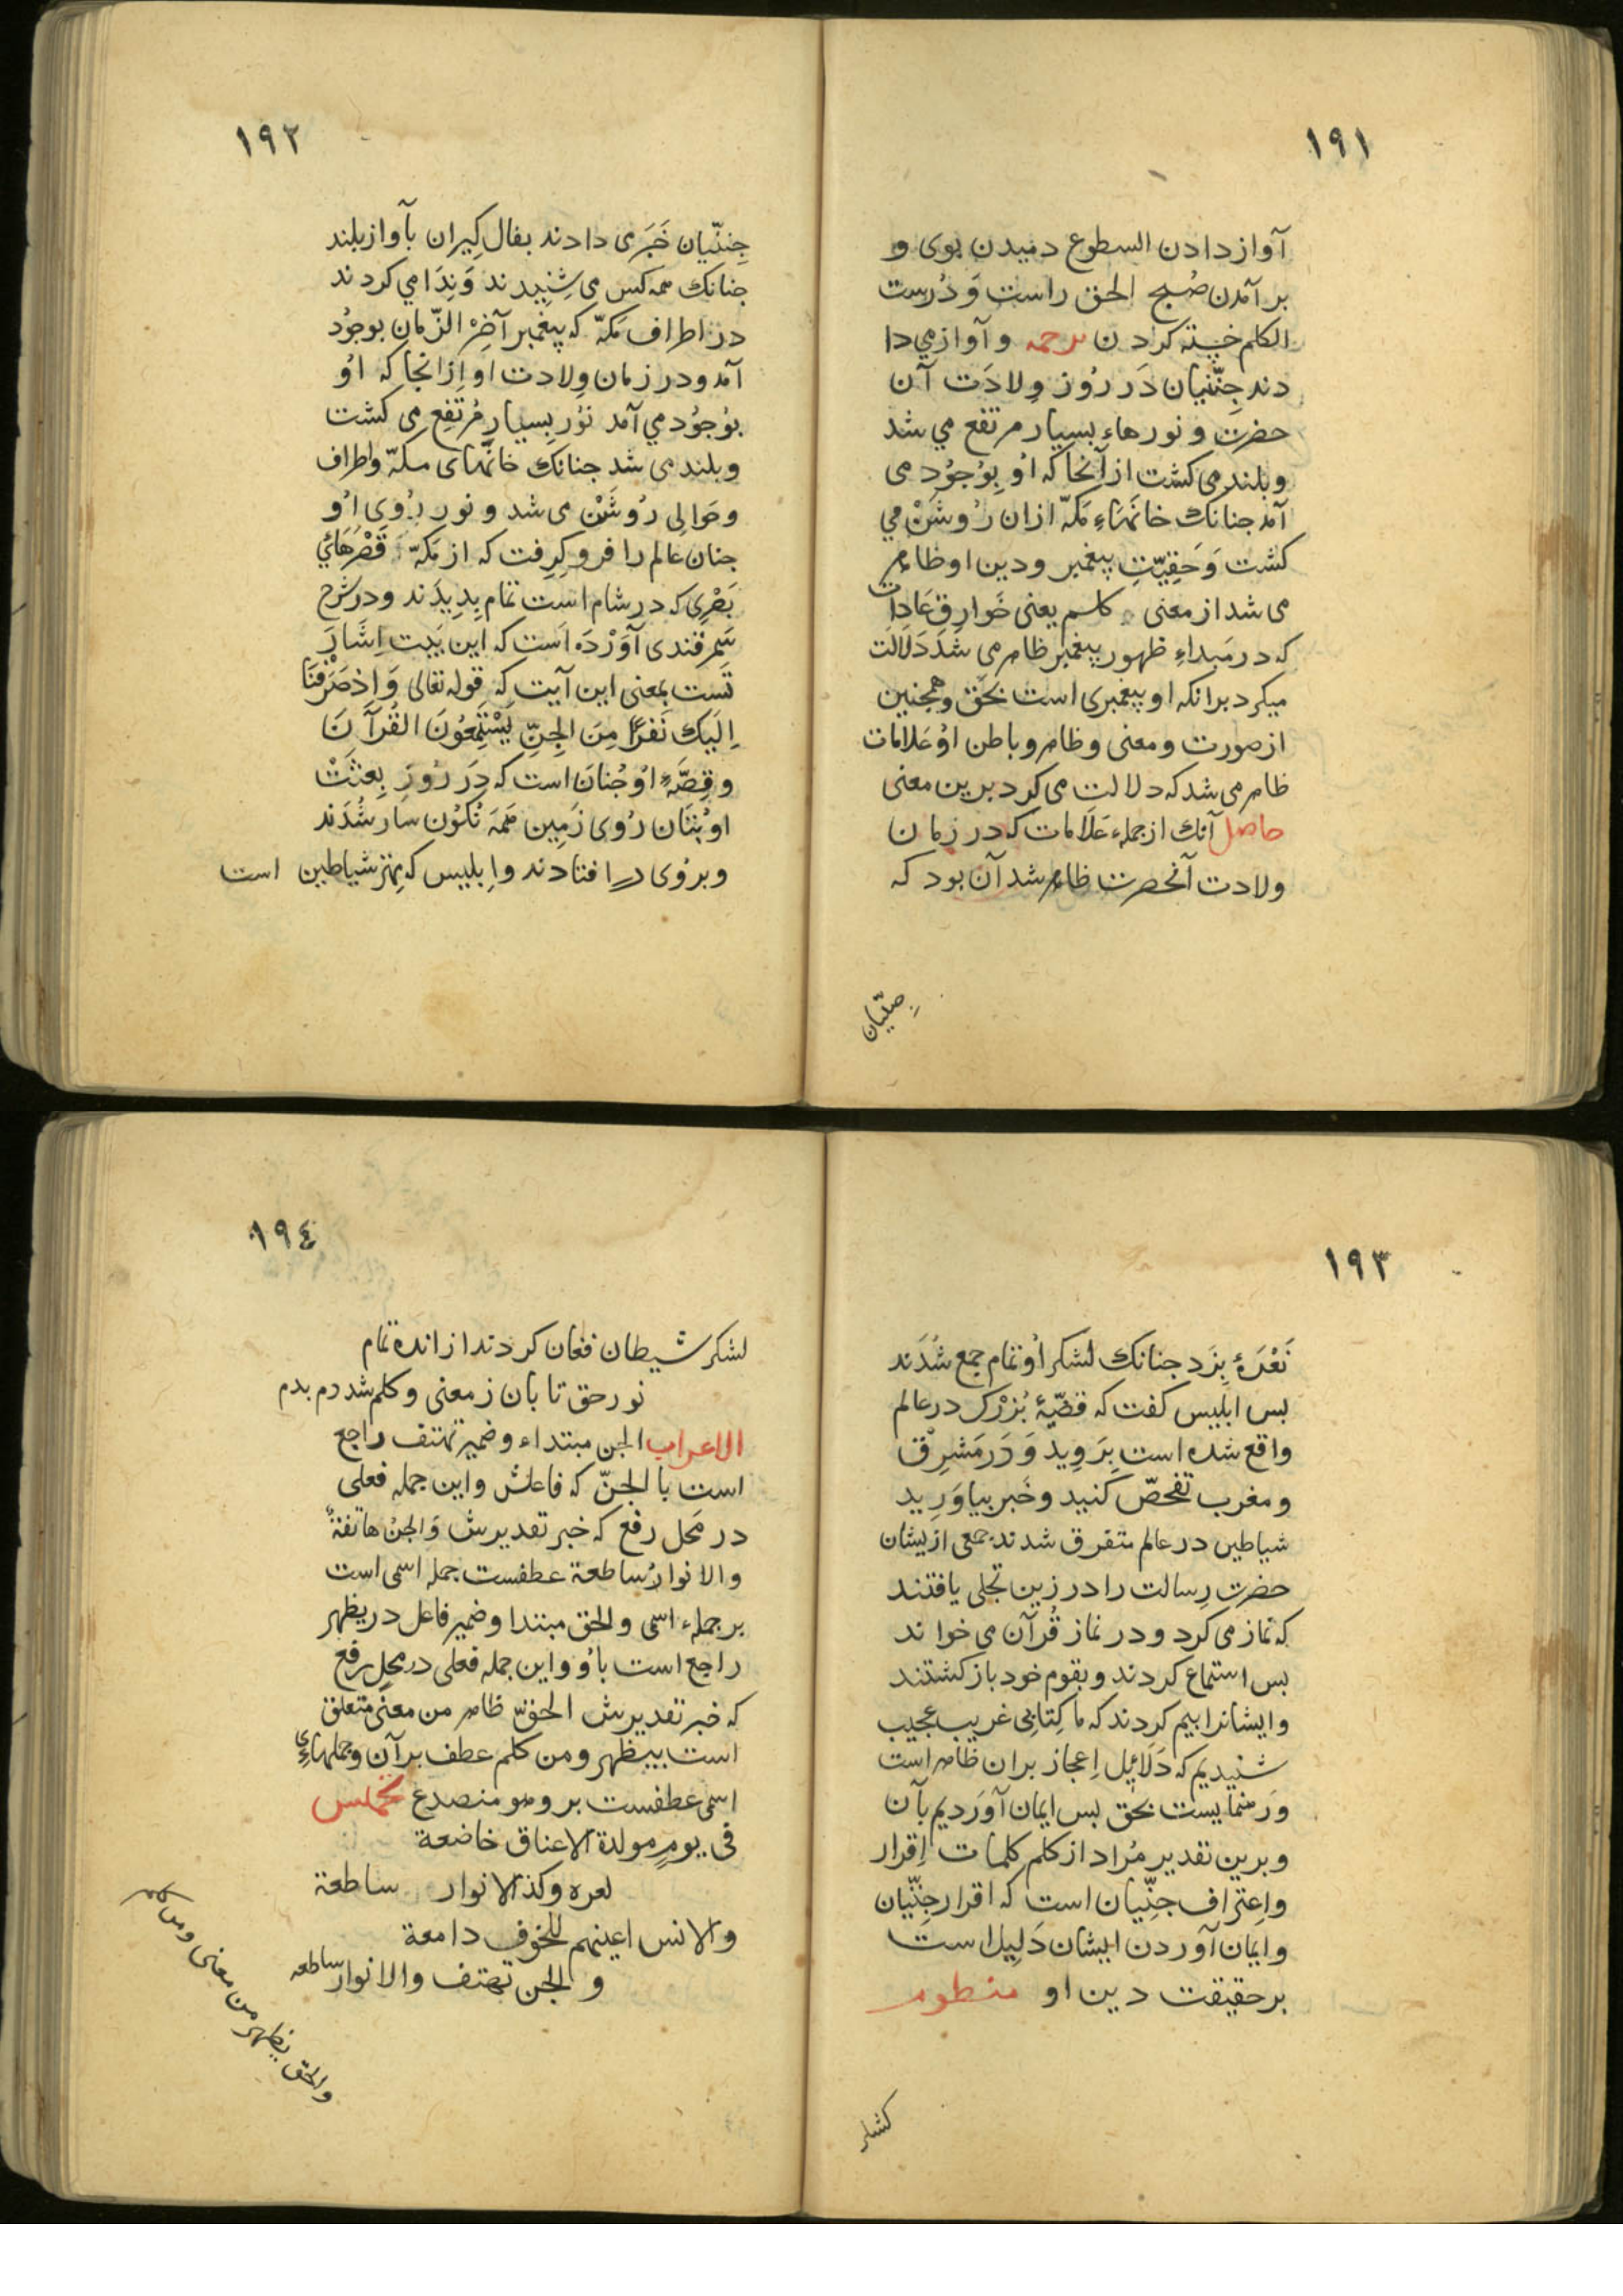 ١٩١
آواز دادن السطوع دمیدن بوی و
بر آمدن صُبح الحق راست وَ دُرست
الکلم خسته کردن ترجمه و آواز می دا
دند جِنّنیان دَر رُوز وِلادَت آن
حضرت و نورهاءِ بسیار مرتفع می شد
و بلند می کشت از آنجا که اُو بِوُجُوُد می
آمد جنانک خانَهَاءِ مَکهّ ازان رُوشَنْ می
کشت وَ حَقِیّتِ پیغمبر و دین او ظاهر
می شد از معنی کلم یعنی خَوارِقِ عَادَات
که در مَبداءِ ظهور پیغمبر ظاهر می شد دَلَالَت
میکرد برانکه او پیغمبری است بحَق و همجنین
از صورت و معنی و ظاهر و باطن اوُ عَلامات
ظاهر می شد که دلالت می کرد برین معنی
حاصل آنک از جملهء عَلَامات که در زمان
ولادت آنحضرت ظاهر شد آن بود که
جِنّیان
١٩٢
جِننّیان خَبَری دادند بفال کِیران بآواز بلند
جنانک همه کس می شِنِیدند وَنِدَا می کردند
در اطراف مَکهّ که پیغمبر آخِرْ الزّمان بوجوُد
آمد و در زمان وِلادت او از انجا که اوُ
بوُجوُد می آمد نوُر بِسیار مُرتَفِع می کشت
و بلند می شد جنانک خانَهای مکهّ و اطراف
و حَوالی رُوشَنْ می شد و نور رُوی اوُ
جنان عالم را فرو کِرِفت که از مَکهّ قَصْرَهائیِ
بَصْرِی که در شام است تمام بِدِیدَند و در شرح
سَمرقندی آوَرْدَه اَست که این بَیت اِشَارَ
تَست بمعنی این آیت که قوله تعالی وَاِذْصَرَفْنَا
اِلَیکَ نَفَرًا مِنَ الجِنِّ یَسْتَمِعُونَ القُرآنَ
و قِصَّهءِ اوُ جُنانَ است که دَر رُوزِ بِعثَتْ
او بُتَان رُوی زَمِین هَمَه نکُوُن سَار شُدَند
و بروُی در افتادند و اِبلیس که مِهتر شیاطین است
١٩٣
نَعْرَهٔ بِزَد جنانک لشکر اوُ تمام جمع شُدَند
بس ابلیس کفت که قضیّهٔ بُزرْک در عالم
واقع شده است بِرَوِید وَ دَر مَشرِقْ
و مغرب تفحصّ کنید و خَبر بیاوَرِید
شیاطین در عالم متفرق شدند جمعی ازیشان
حضرتِ رِسالت را در زین تجلی یافتند
که نماز می کرد و در نماز قُرآن می خواند
بس استماع کردند و بقوم خود باز کشتند
و ایشانرا بیم کردند که ما کِتابِی غریب عجیب
شنیدیم که دَلَائِل اِعجاز بران ظاهر است
وَ رهنمایست بحق بس ایمان آوَردیم بآن
و برین تقدیر مُراد از کلم کلمات اِقرار
و اِعتراف جنِّیان است که اقرار جِنّیان
و ایمان آوردن ایشان دَلِیل است
بر حقیقت دین او منظوم
لشکر
١٩٤
لشکر شیطان فغان کردند از انده تمام
نور حق تابان ز معنی و کلم شد دم بدم
الاعراب الجن مبتداء و ضمیر تهتف راجع
است با الجنّ که فاعلش و این جمله فعلی
در مَحل رفع که خبر تقدیرش وَالجنُ هاتفةٌ
والانوارُ ساطعة عطفست جمله اسمی است
بر جملهء اسمی والحق مبتدا و ضمیر فاعل در یظهر
راجع است باوُ و این جمله فعلی در مَحل رفع
که خبر تقدیرش الحقّ ظاهر من معنًی متعلق
است بیظهر و من کلم عطف بر آن و جملهاءِ
اسمی عطفست بر وهو منصدع تخمیس
فی یومِ مولدة الاعناق خاضعة
لعزه وکذ الانوار ساطعة
والانس اعینهم للخوف دامعة
و الجن تهتف والانوار ساطعه
والحق یظهر من معنی ومن کلم